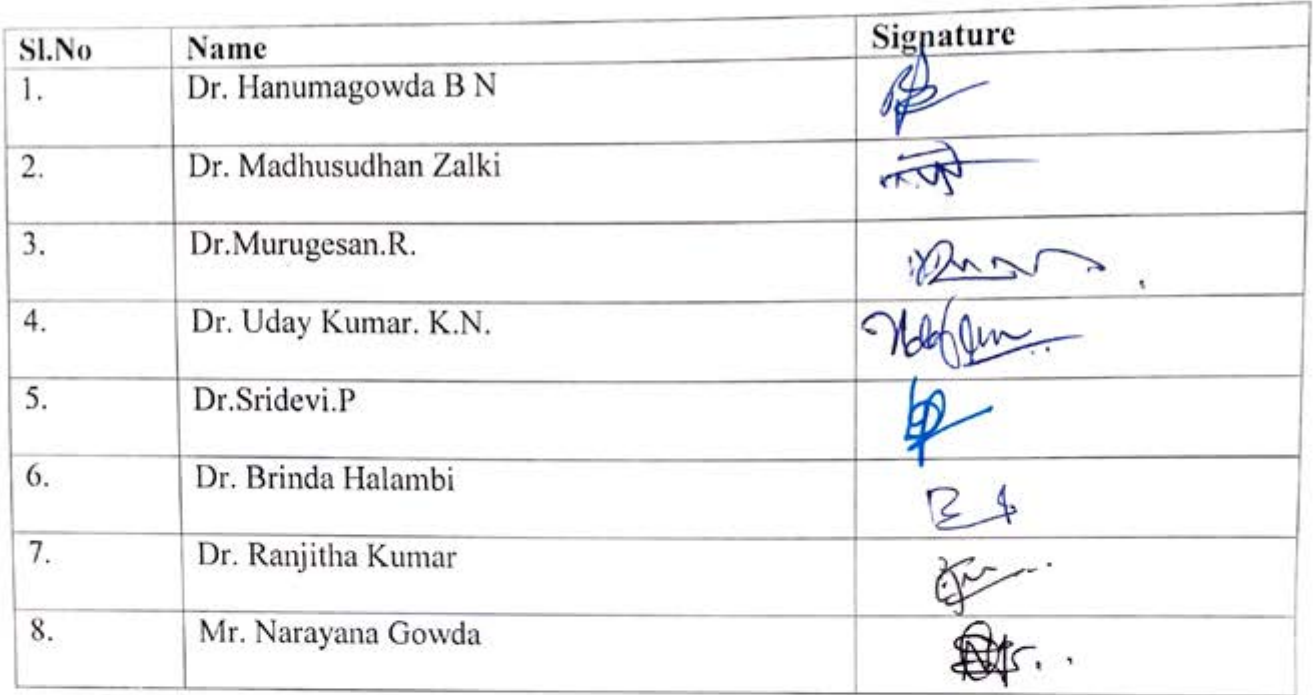 Sl.No Name Signature
1. Dr. Hanumagowda B N
2. Dr. Madhusudhan Zalki
3. Dr.Murugesan.R.
4. Dr. Uday Kumar. K.N.
5. Dr.Sridevi.P
6. Dr. Brinda Halambi
7. Dr. Ranjitha Kumar
8. Mr. Narayana Gowda